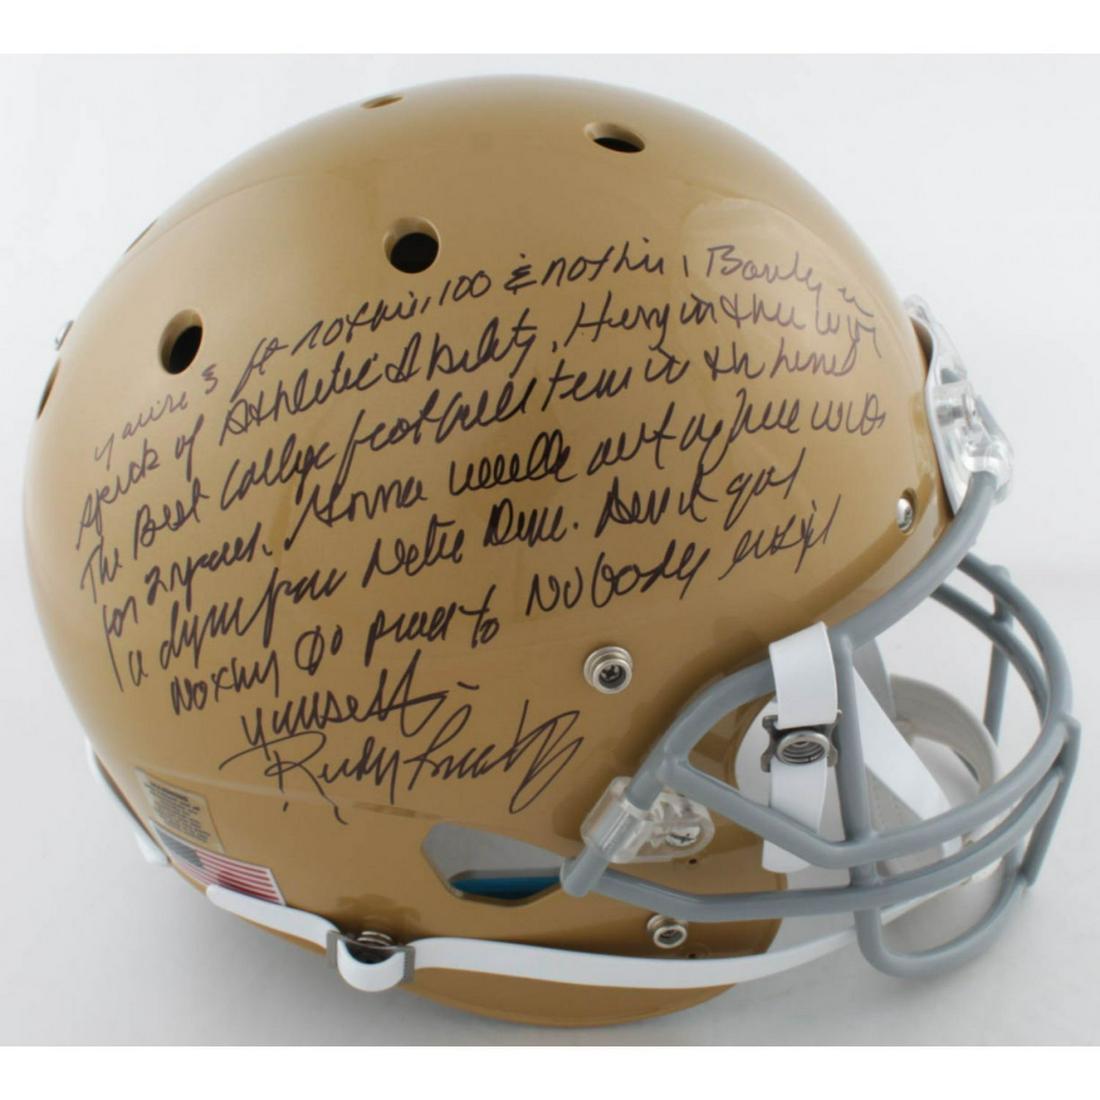 you're 5 ft nothin, 100 & nothin, Barely a
speck of Athletic Ability. Hung in there with
The Best College football team in the land
for 2 years. Gonna walk out of here with
a dyree from Notre Dame. Don't got
Nothing to prove to Nobody except
yourself
Rudy